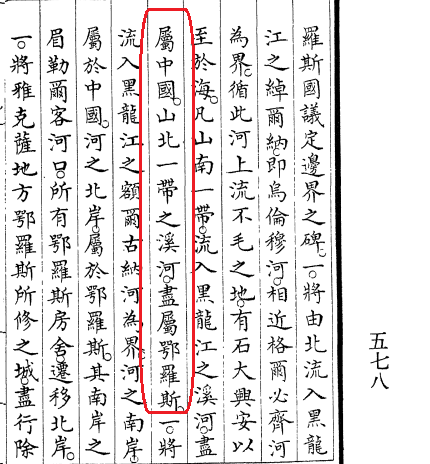 羅斯國議定邊界之碑。一。將由北流入黑龍
江之綽爾納。即烏倫穆河。相近格爾必齊河
為界。循此河上流不毛之地。有石大興安以
至於海。凡山南一帶。流入黑龍江之溪河。盡
屬中國。山北一帶之溪河。盡屬鄂羅斯。一。將
流入黑龍江之額爾古納河為界。河之南岸。
屬於中國。河之北岸。屬於鄂羅斯。其南岸之
眉勒爾客河口。所有鄂羅斯房舍。遷移北岸。
一。將雅克薩地方鄂羅斯所修之城。盡行除
五七八